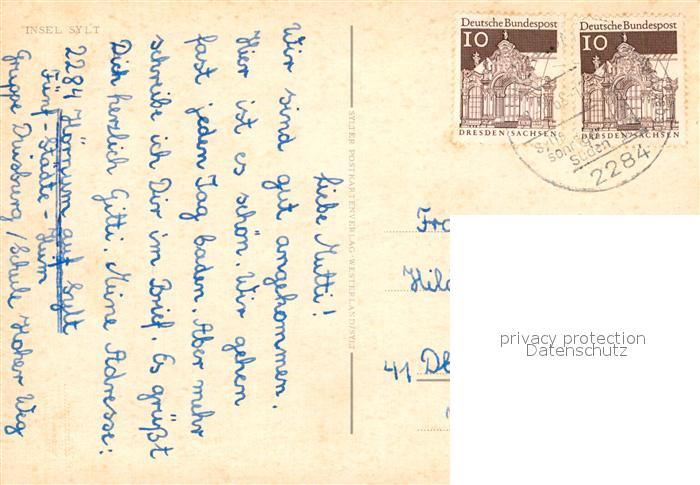 INSEL SYLT
Liebe Mutti!
Wir sind gut angekommen.
Hier ist es schön. Wir gehen
fast jeden Tag baden. Aber mehr
schreibe ich Dir im Brief. Es grüßt
Dich herzlich Gitti. Meine Adresse:
2284 Hörnum auf Sylt
Fünf-Städte-Heim
Gruppe Duisburg / Schule Hoher Weg
SYLTER POSTKARTENVERLAG · WESTERLAND/SYLT
Deutsche Bundespost
10
DRESDEN/SACHSEN
Deutsche Bundespost
10
DRESDEN/SACHSEN
Sylts
sonniger
Süden
2284
Fra
Hild
41 Du
privacy protection
Datenschutz